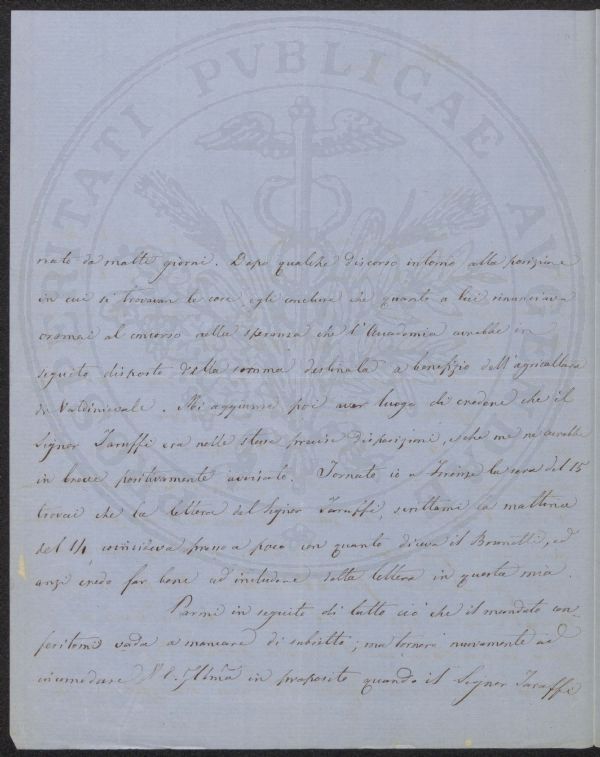 nate da molti giorni. Dopo qualche discorso intorno alla posizione
in cui si trovavan le cose, egli concluse che quanto a lui rinunciava
oramai al concorso nella speranza che l'Accademia avrebbe in
seguito disposto della somma destinata a benefizio dell'agricoltura
di Valdinievole. Mi aggiunse poi aver luogo di credere che il
Signor Taruffi era nelle stesse precise disposizioni, e che me ne avrebbe
in breve positivamente avvisato. Tornato io a Firenze la sera del 15
trovai che la lettera del Signor Taruffi, scrittami la mattina
del 14, coincideva presso a poco con quanto diceva il Brunetti, ed
anzi credo far bene ad includere detta lettera in questa mia.
Parmi in seguito di tutto ciò che il mandato con-
feritomi vada a mancare di subietto; ma tornerò nuovamente ad
incomodare V. S. Illma in proposito quando il Signor Taruffi